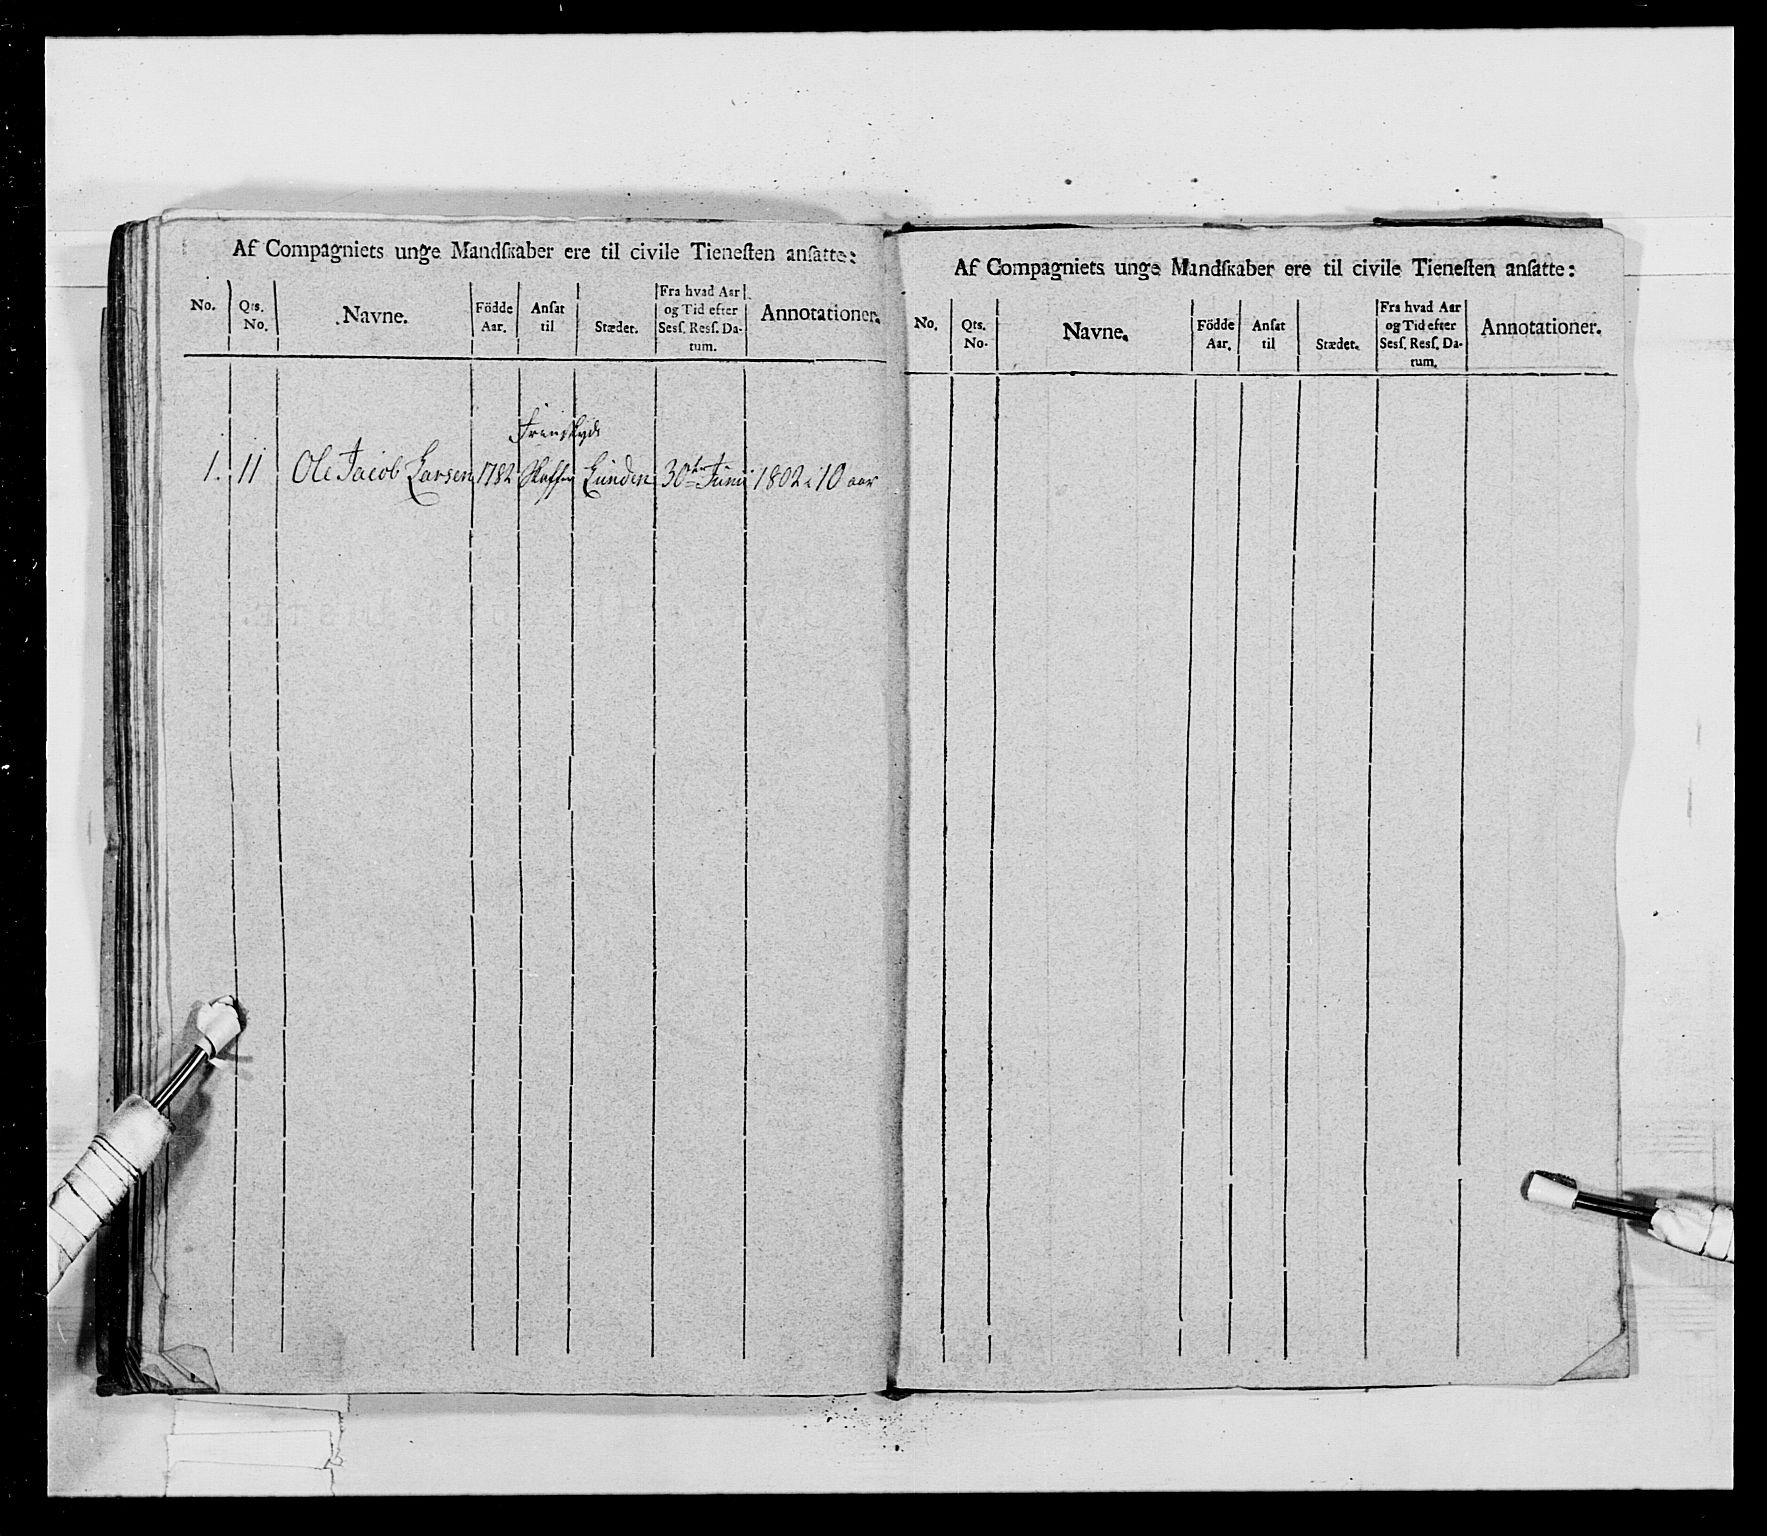 Af Compagniets unge Mandſkaber ere til civile Tieneſten anſatte:
No. Qts. No. Navne. Födde Aar. Anſat til Stædet. Fra hvad Aar og Tid efter Sesſ. Resſ. Datum. Annotationer.
1. 11 Ole Jacob Larsen 1782 Lunden 30te Junii 1802 i 10 aar
Af Compagniets unge Mandſkaber ere til civile Tieneſten anſatte:
No. Qts. No. Navne. Födde Aar. Anſat til Stædet. Fra hvad Aar og Tid efter Sesſ. Resſ. Datum. Annotationer.